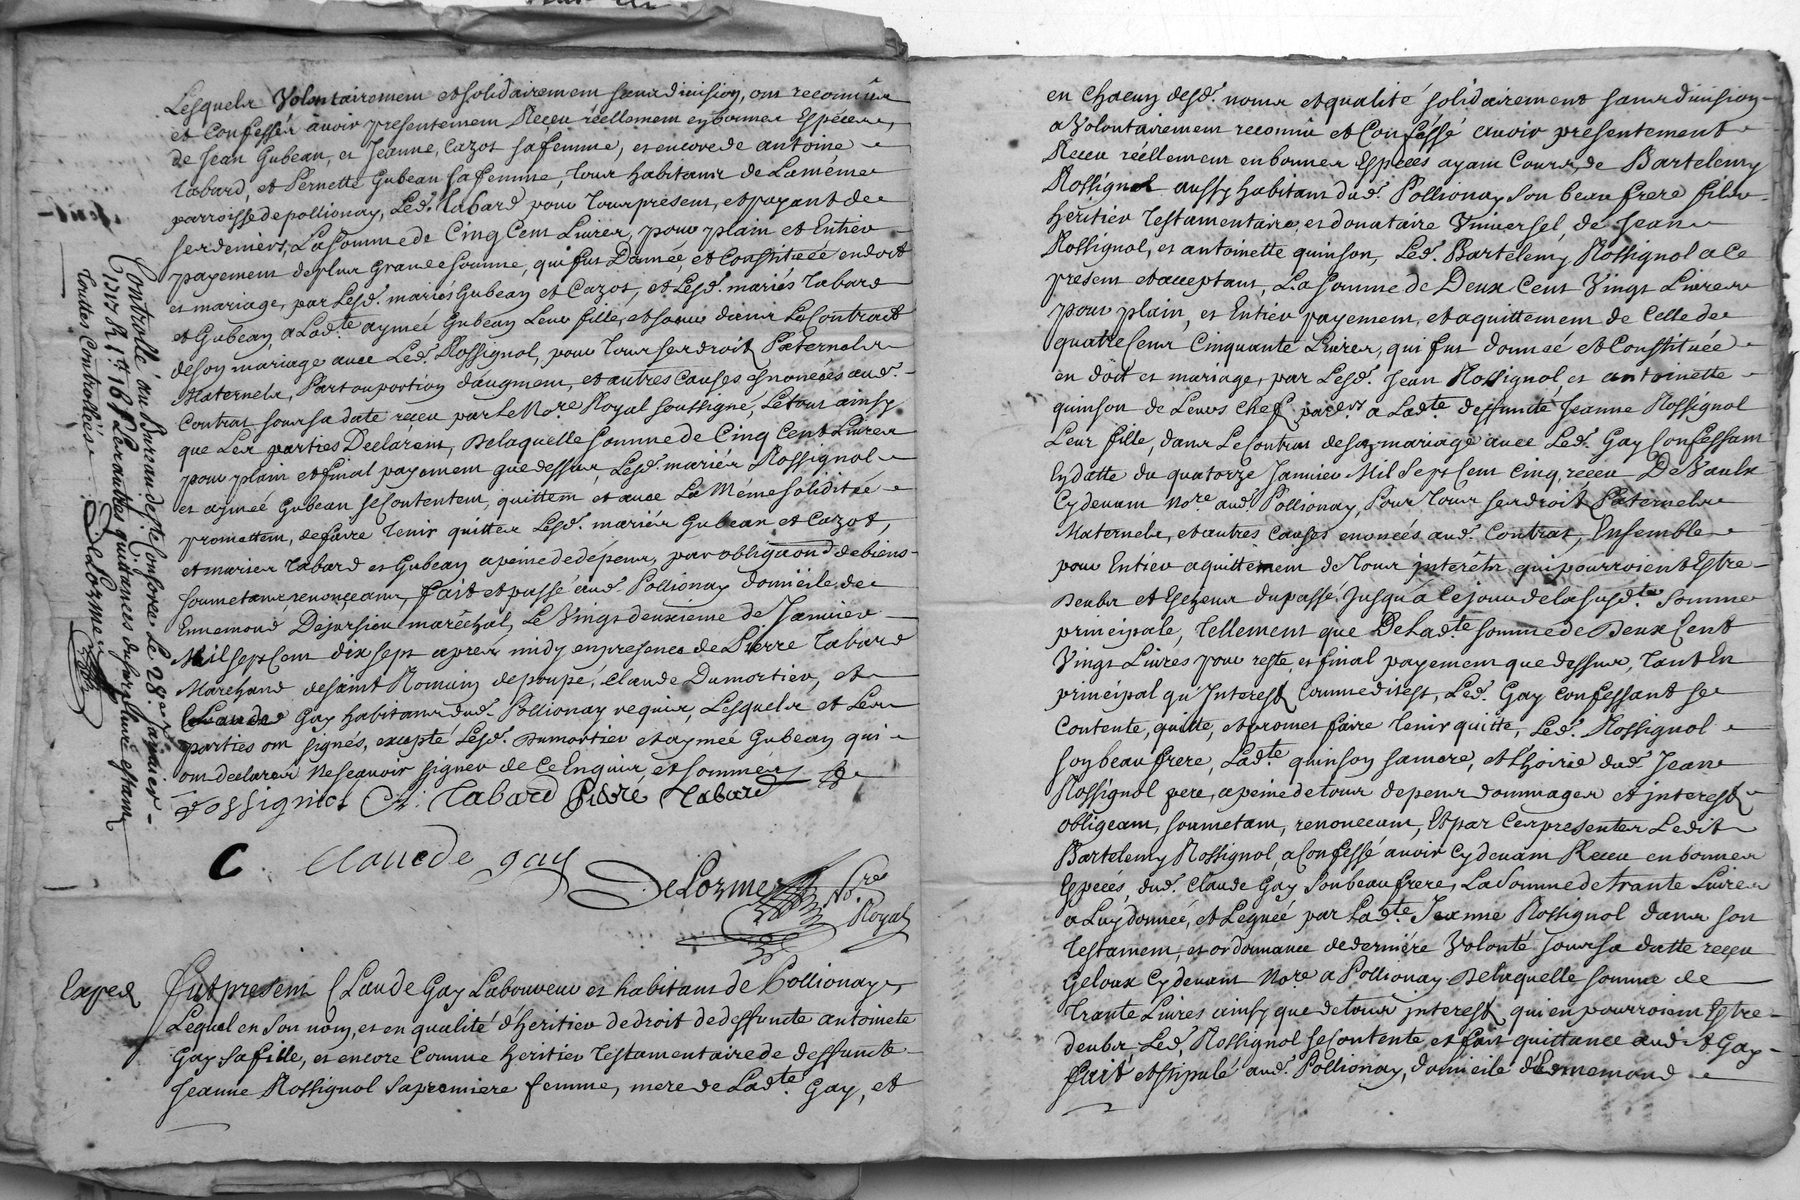 Lesquels Volontairement et solidairement sans division, ont reconnus
et Confessés avoir presentement Receu réellement en bonnes Espéces,
de Jean Gubean, et Jeanne, Cazot sa femme, et encore de antoine
Tabard, et Pernette Gubean sa femme, tous habitans de La méme
parroisse de pollionay, Led. Tabard pour tous présent, et payant de
ses deniers, La somme de Cinq Cent Livres, pour plain et Entier
payement de plus grande somme, qui fut Donnée, et Constituée en dott
et mariage, par Lesd. mariés Gubean et Cazot, et Lesd. mariés Tabard
et Gubean, a Ladte aymeé Gubean Leur fille, et soeur dans Le Contract
de son mariage avec Led. Rossignol, pour tous ses droits Paternels
Maternels, Part ou portion d'augment, et autres Causes esnoncées aud.
Contrat sous sa date receu par Le Nore Royal soussigné, Le tout ainsy
que Les parties Declarent, De laquelle somme de Cinq Cent Livres
pour plain et final payement que dessus, Lesd. mariés Rossignol
et aymeé Gubean se Contentent, quittent et avec La Méme solidité
promettent, de faire tenir quittes Lesd. mariés Gubean et Cazot,
et mariés Tabard et Gubean a peine de dépens, par obligaon de biens
soumetans renonçeans, fait et passé aud. Pollionay domicile de
Ennemond Dejursieu maréchal, Le Vingt deuxieme de Janvier
Mil sept Cent dix sept apres midy en presence de Pierre Tabard
Marchand de saint Romain de poupé, Claude Dumortier, et
Claude Gay habitans dud. Pollionay requis, Lesquels et Les
parties ont signés, excepté Lesd. Dumortier et aymeé Gubean qui
ont declarés Ne scavoir signer de Ce Enquis, et sommés
Rossignol C. Tabard Pierre Tabard
C. Claude gay
DeLorme Nre
Royal
Controllé au Bureau de Le 28e Janvier
1717 R. 1tt 16s Les autres quittances estant
touttes Controllées DeLorme
Exped
fut present Claude Gay Laboureur et habitant de Pollionay,
Lequel en Son nom, et en qualité d'heritier de droit de deffuncte antoinete
Gay sa fille, et encore Comme heritier testamentaire de deffuncte
Jeanne Rossignol sa premiere femme, mere de Ladte Gay, et
en Chacun desd. noms et qualité solidairement sans division
a Volontairement reconnu et Confessé avoir présentement
Receu réellement en bonnes Espéces ayant Cours, de Bartelemy
Rossignol aussy habitant dud. Pollionay son beau frere fils
héritier testamentaire, et donataire Universel, de Jean
Rossignol, et antoinette quinson, Led. Bartelemy Rossignol a Ce
présent et acceptant, La somme de Deux Cent Vingt Livres
pour plain, et Entier payement, et aquittement de Celle de
quatre Cent Cinquante Livres, qui fut donneé et Constituée
en dott et mariage, par Lesd. Jean Rossignol, et antoinette
quinson de Leurs Chef a Ladte deffuncte Jeanne Rossignol
Leur fille, dans Le Contrat de son mariage avec Led. Gay Confessant
En datte du quatorze Janvier Mil Sept Cent Cinq, receu DeVaulx
Cydevant Nore aud. Pollionay, Pour tous ses droits Paternels
Maternels, et autres Causes enoncés aud. Contrat, Ensemble
pour Entier aquittement de tous interéts qui pourroient Estre
Deubs et Escheus du passé Jusqu'à Ce jour de la susd.te somme
principale, tellement que De Ladte somme de Deux Cent
Vingt Livres pour reste, et final payement que dessus, tant En
principal qu'Interest Comme dit est, Led. Gay Confessant se
Contente, quitte, et promet faire tenir quitte, Led. Rossignol
son beau frere, Ladte quinson sa mere, et L'hoirie dud. Jean
Rossignol pere, a peine de tous depens dommages et interests
obligeant, soumetant, renonceant, Et par Ces presentes Ledit
Bartelemy Rossignol a Confessé avoir Cydevant Receu en bonnes
Espéces, dud. Claude Gay Son beau frere, La somme de trante Livres
a Luy donneé, et Leguéé par Ladte Jeanne Rossignol dans son
testament, et ordonnance de derniére Volonté sous sa datte receu
Geloux Cydevant Nore a Pollionay De laquelle somme de
trante Livres ainsy que de tous interest qui en pourroient Estre
deubs Led. Rossignol se Contente, et fait quittance aud. Gay
fait et stipulé aud. Pollionay, domicile d'Ennemond